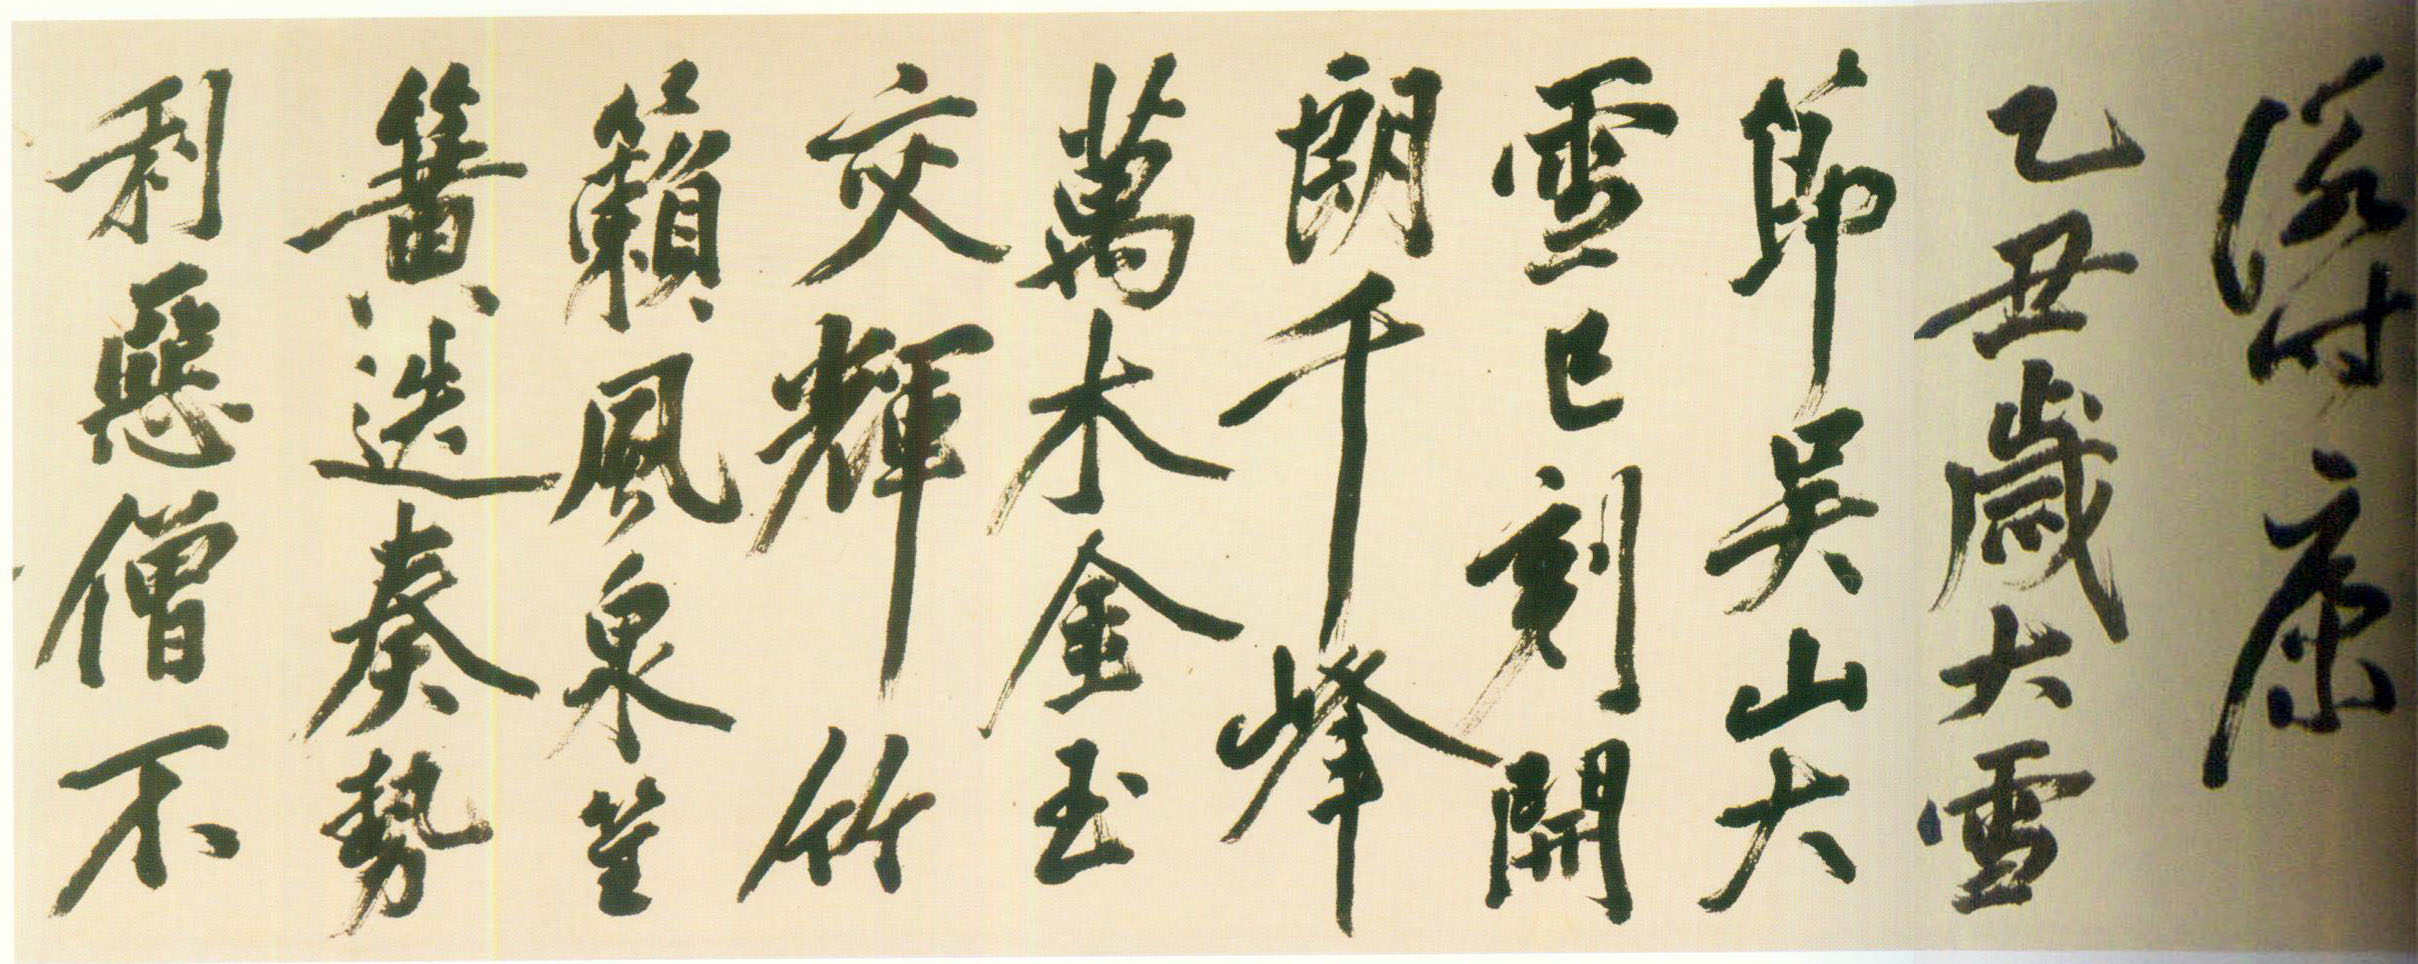 康
乙丑歲大雪
節吳山大
雪已刻開
朗千峰
萬木金玉
交輝竹
籟風泉笙
簧迭奏勢
利惡僧不